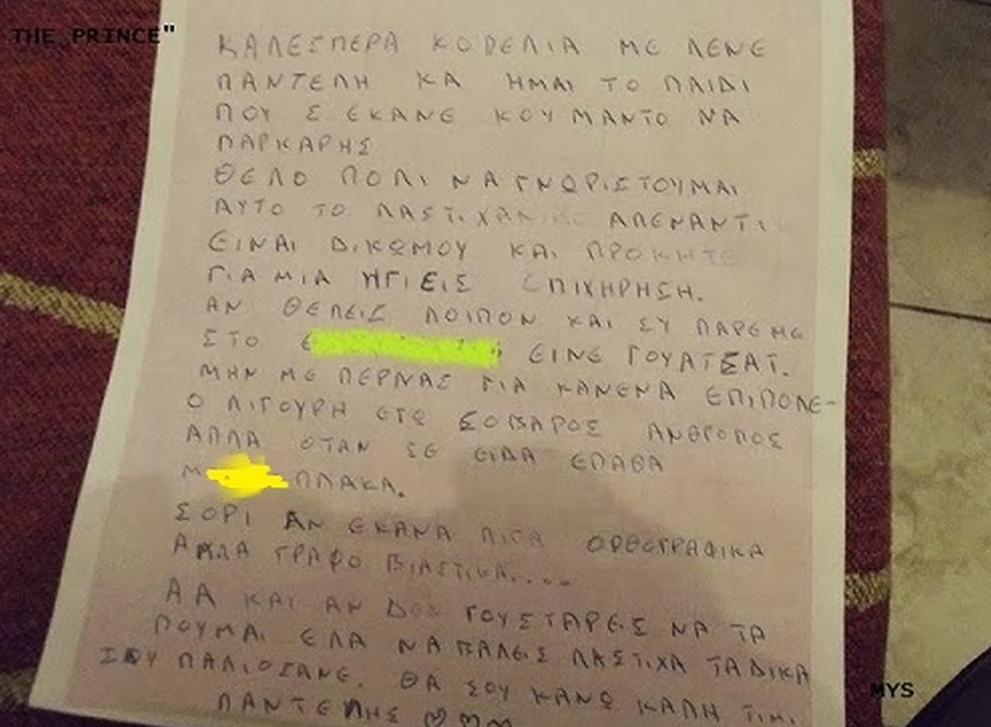 THE PRINCE"
ΚΑΛΕΣΠΕΡΑ ΚΟΠΕΛΙΑ ΜΕ ΛΕΝΕ
ΠΑΝΤΕΛΗ ΚΑ ΗΜΑΙ ΤΟ ΠΑΙΔΙ
ΠΟΥ Σ ΕΚΑΝΕ ΚΟΥΜΑΝΤΟ ΝΑ
ΠΑΡΚΑΡΗΣ
ΘΕΛΟ ΠΟΛΙ ΝΑ ΓΝΩΡΙΣΤΟΥΜΑΙ
ΑΥΤΟ ΤΟ ΛΑΣΤΙΧΑΔΙΚΟ ΑΠΕΝΑΝΤΙ
ΕΙΝΑΙ ΔΙΚΩΜΟΥ ΚΑΙ ΠΡΟΚΗΤΕ
ΓΙΑ ΜΙΑ ΥΓΙΕΙΣ ΕΠΙΧΗΡΗΣΗ.
ΑΝ ΘΕΛΕΙΣ ΛΟΙΠΟΝ ΚΑΙ ΣΥ ΠΑΡΕ ΜΕ
ΣΤΟ ΕΙΝΕ ΓΟΥΑΤΣΑΤ.
ΜΗΝ ΜΕ ΠΕΡΝΑΣ ΓΙΑ ΚΑΝΕΝΑ ΕΠΙΠΟΛΕ-
Ο ΛΙΓΟΥΡΗ ΕΓΩ ΣΟΒΑΡΟΣ ΑΝΘΡΟΠΟΣ
ΑΠΛΑ ΟΤΑΝ ΣΕ ΕΙΔΑ ΕΠΑΘΑ
Μ ΠΛΑΚΑ.
ΣΟΡΙ ΑΝ ΕΚΑΝΑ ΛΙΓΑ ΟΡΘΟΓΡΑΦΙΚΑ
ΑΛΛΑ ΓΡΑΦΟ ΒΙΑΣΤΙΚΑ.....
ΑΑ ΚΑΙ ΑΝ ΔΕΝ ΓΟΥΣΤΑΡΕΙΣ ΝΑ ΤΑ
ΠΟΥΜΑΙ ΕΛΑ ΝΑ ΒΑΛΕΙΣ ΛΑΣΤΙΧΑ ΤΑ ΔΙΚΑ
ΣΟΥ ΠΑΛΙΟΣΑΝΕ. ΘΑ ΣΟΥ ΚΑΝΩ ΚΑΛΗ ΤΙΜΗ
ΠΑΝΤΕΛΗΣ ♡♡♡
MYS